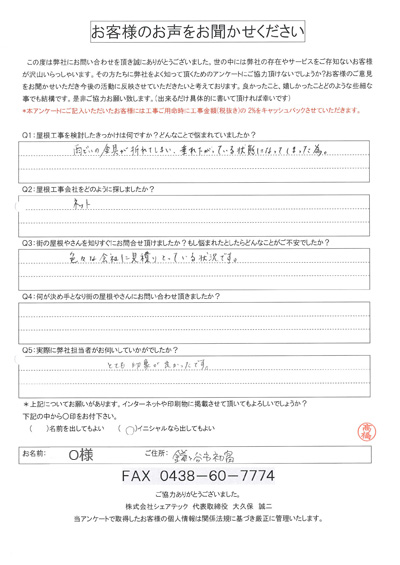 お客様のお声をお聞かせください
この度は弊社にお問い合わせを頂き誠にありがとうございました。世の中には弊社の存在やサービスをご存知ないお客様
が沢山いらっしゃいます。その方たちに弊社をよく知って頂くためのアンケートにご協力頂けないでしょうか?お客様のご意見
をお聞かせいただき今後の活動に反映させていただきたいと考えております。良かったこと、嬉しかったことどのような些細な
事でも結構です。是非ご協力お願い致します。(出来るだけ具体的に書いて頂ければ幸いです)
*本アンケートにご記入いただいたお客様には工事ご用命時に工事金額(税抜き)の2%をキャッシュバックさせていただきます。
Q1:屋根工事を検討したきっかけは何ですか?どんなことで悩まれていましたか?
雨どいの金具が折れてしまい、垂れ下がっている状態になってしまった為。
Q2:屋根工事会社をどのように探しましたか?
ネット
Q3:街の屋根やさんを知りすぐにお問合せ頂けましたか?もし悩まれたとしたらどんなことがご不安でしたか?
色々な会社に見積りとっている状況です。
Q4:何が決め手となり街の屋根やさんにお問い合わせ頂きましたか?
Q5:実際に弊社担当者がお伺いしていかがでしたか?
とても印象が良かったです。
*上記についてお願いがあります。インターネットや印刷物に掲載させて頂いてもよろしいでしょうか?
下記の中から〇印をお付下さい。
( )名前を出してもよい (〇)イニシャルなら出してもよい
髙橋
お名前: O様 ご住所: 鎌ヶ谷市初富
FAX 0438-60-7774
ご協力ありがとうございました。
株式会社シェアテック 代表取締役 大久保 誠二
当アンケートで取得したお客様の個人情報は関係法規に基づき厳正に管理いたします。